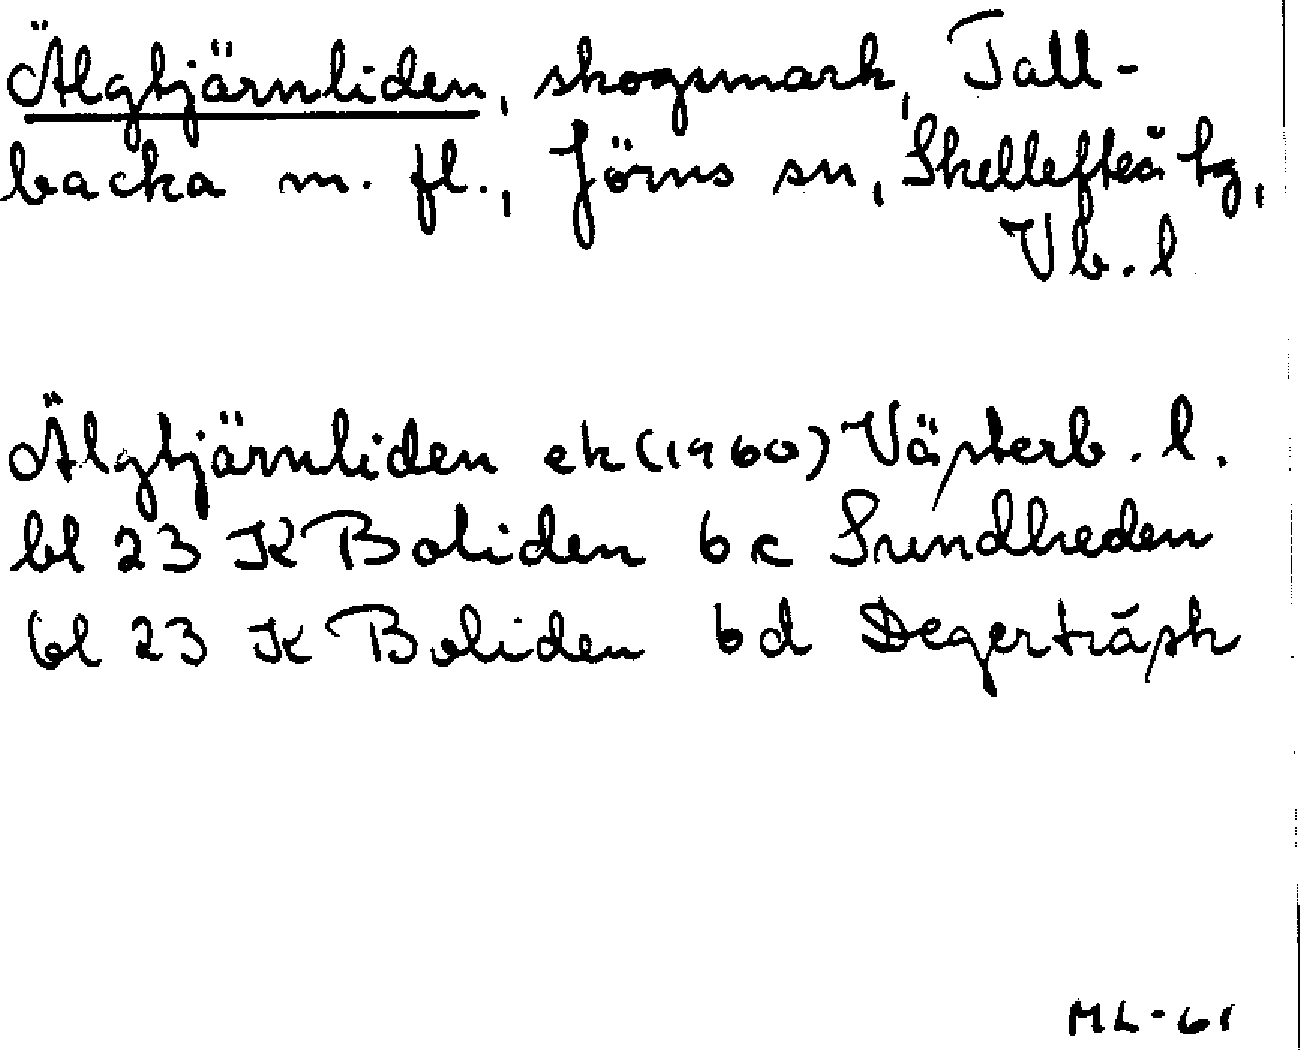 Älgtjärnliden, skogsmark, Tall-
backa m. fl., Jörns sn, Skellefteå tg,
Vb. l
Älgtjärnliden ek (1960) Västerb. l.
bl 23 K Boliden 6c Sundheden
bl 23 K Boliden 6d Degerträsk
ML-61